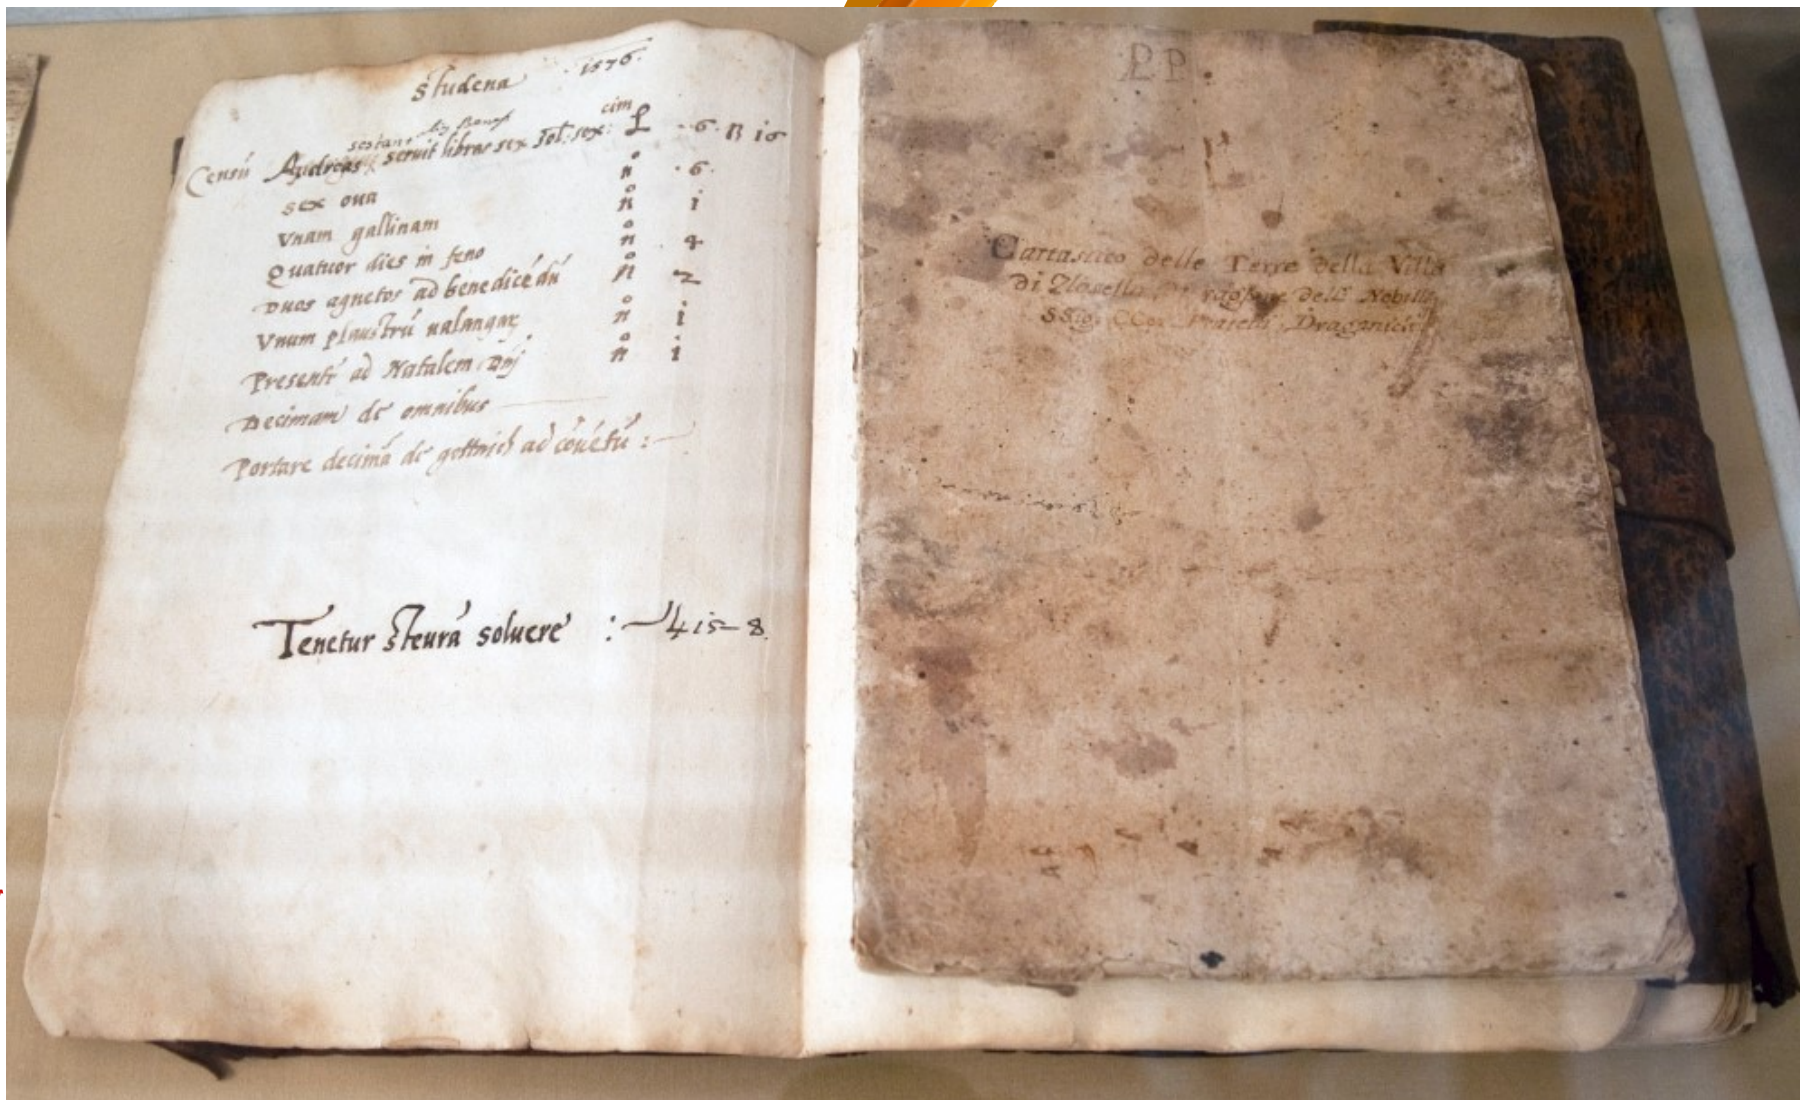 Studena 1576.
cim
Censū Andreas seruit libras sex sol: sex: L 6. B 16
sex oua n° .6.
Vnam gallinam n° i
Quatuor dies in feno n° 4
Duos agnetos ad benedicēdū n° 2
Vnum plaustrū ualangar n° i
Presentē ad Natalem Dnj n° i
Decimam de omnibus
Portare decimā de ad cōuētū :
Tenetur steurā soluere : 4 15 — 8
PP
Cattastico delle Terre della Villa
di Zlosella ragione delli Nobilli
SSig. CCo. Fratelli Draganich